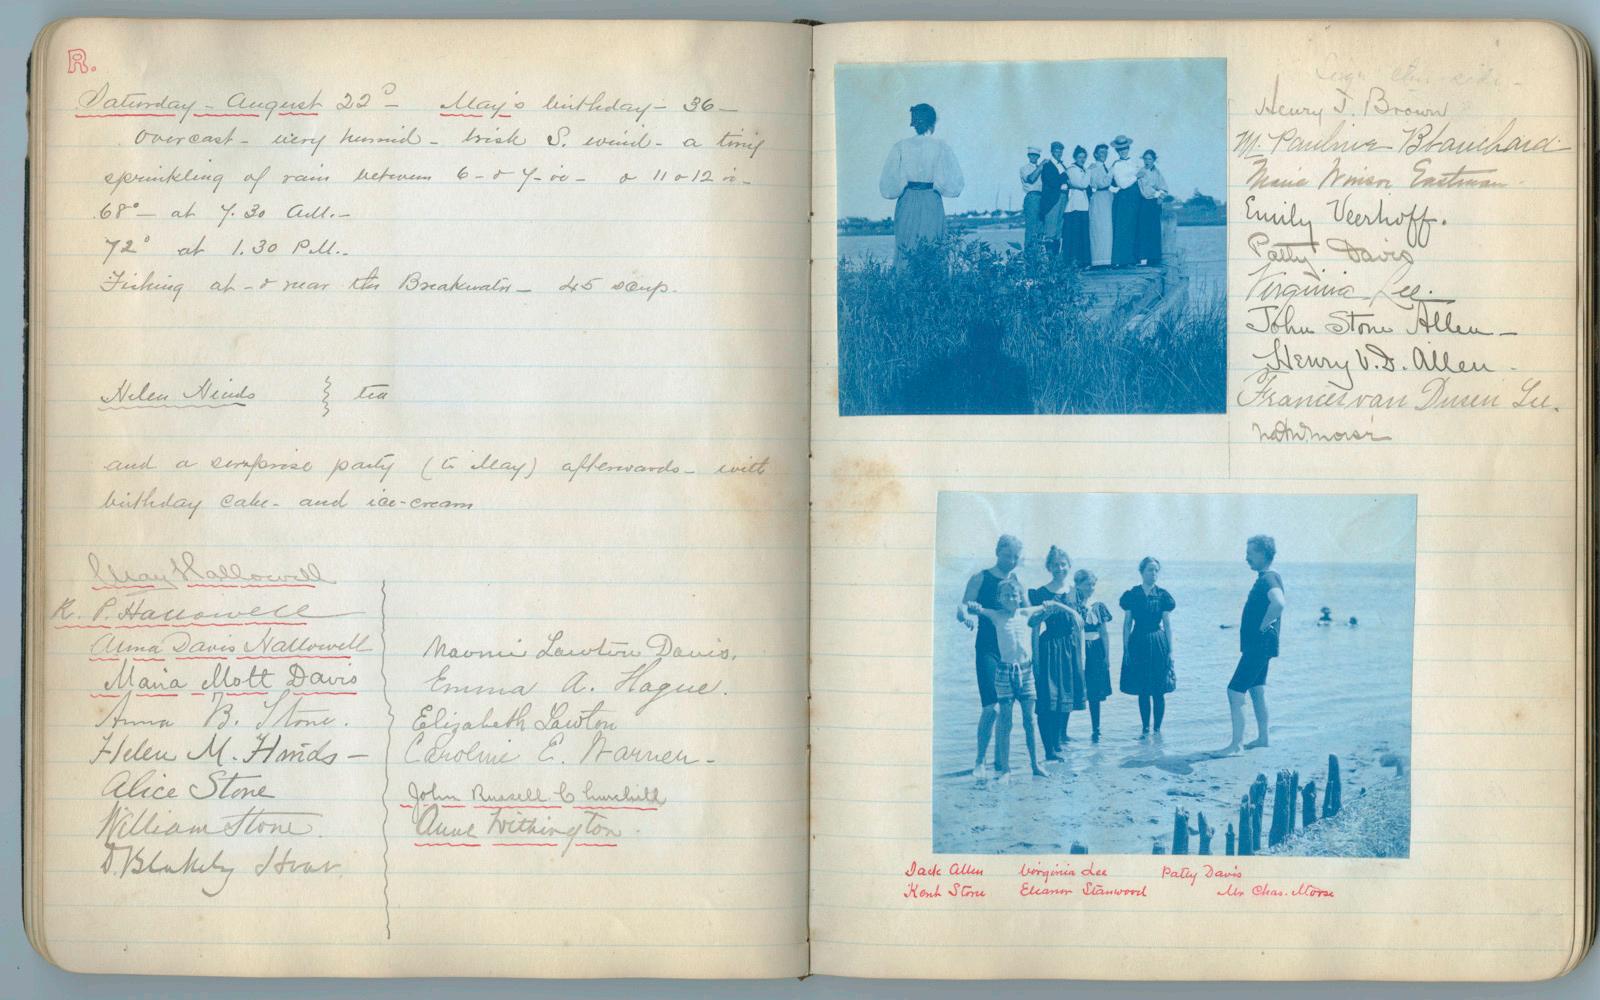 R.
Saturday - August 22d - May's birthday - 36 -
overcast - very humid - brisk S. wind - a tiny
sprinkling of rain between 6 - & 7 - & 11 & 12
68° - at 7.30 A.M. -
72° at 1.30 P.M. -
Fishing at - & near the Breakwater - 45 scup.
Helen Hinds } tea
and a surprise party (to May) afterwards - with
birthday cake - and ice-cream
May Hallowell
R. P. Hallowell
Anna Davis Hallowell
Maria Mott Davis
Anna B. Stone.
Helen M. Hinds -
Alice Stone
William Stone.
D. Blakely Hoar.
Naomi Lawton Davis.
Emma A. Hague.
Elizabeth Lawton
Caroline E. Warner -
John Russell Churchill
Anne Withington.
Henry T. Brown
M. Pauline Blanchard
Winsor Eastman
Emily Veerhoff.
Patty Davis
Virginia Lee.
John Stone Allen -
Henry V. D. Allen -
Frances van Dusen Lee.
Jack Allen Virginia Lee Patty Davis
Kent Stone Eleanor Stanwood Mr Chas. Morse